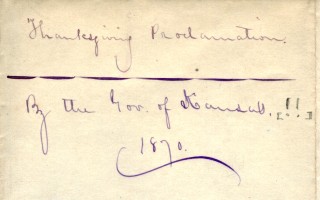 Thanksgiving Proclamation.
By the Gov. of Kansas. [!!]
1870.